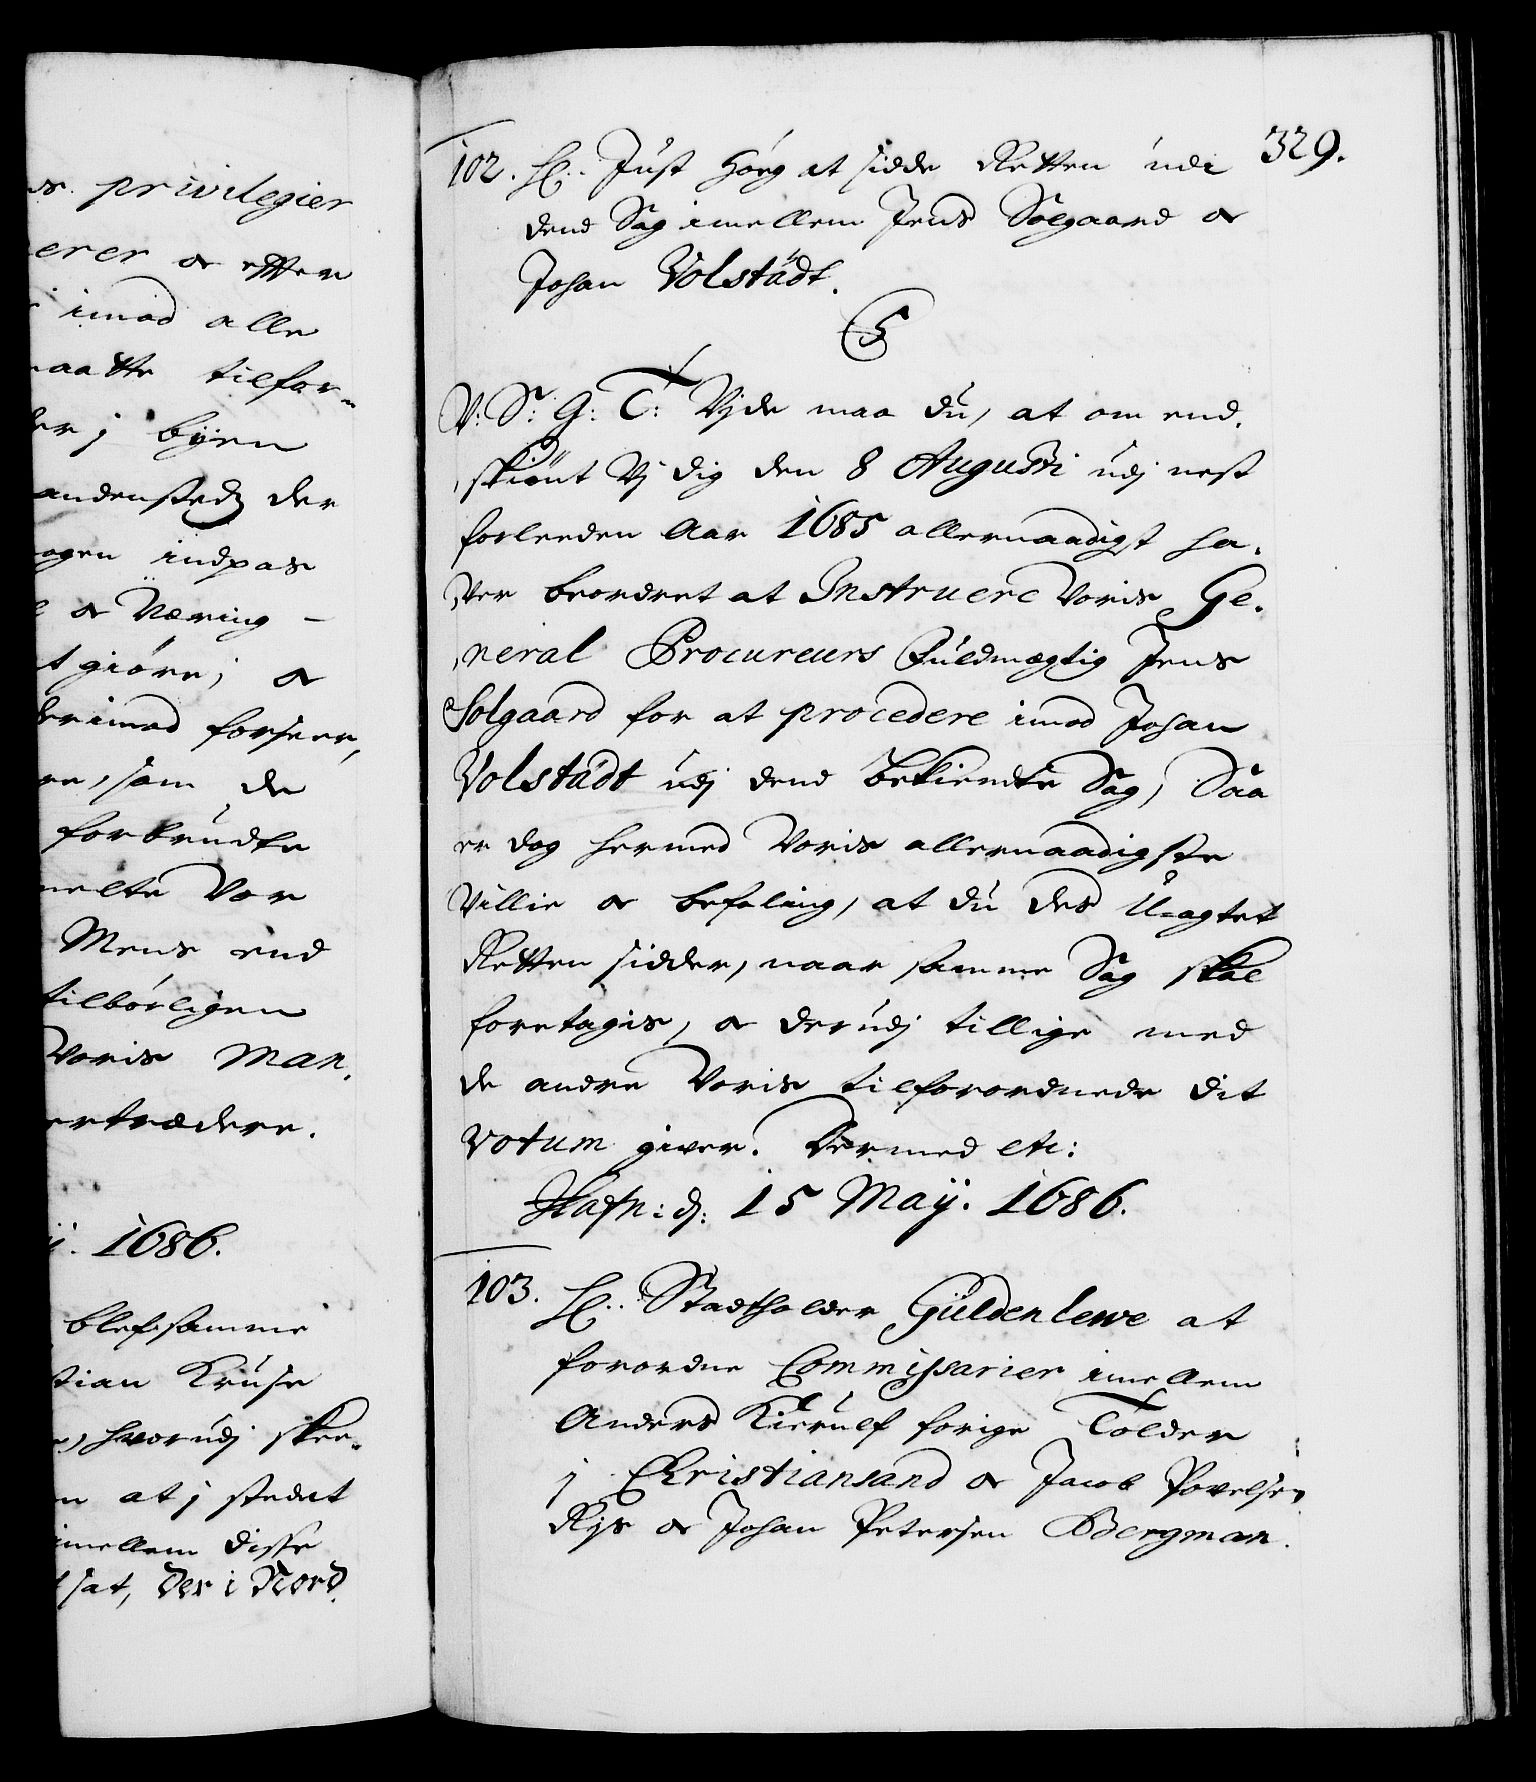 s. privilegier
erer og efter
imod alle
maatte tilfor-
der j byen
andenstedz der
ogen indpas
og Næring -
t giøre; og
derimod forseer,
re, som de
forbrudte
melte Vor
Mens end
tilbørligen
Voris Man.
ertrædere.
j. 1686.
blef samme
stian Kruse
, hvorudj skee-
n at j stedet
imellem disse
sat, der i Nord.
329.
102. Hr: Just Høeg at sidde Retten udi
dend Sag imellem Jens Solgaard og
Johan Volstädt.
C5
V: S: G: T: Vjde maa du, at om end.
skiønt Vj dig den 8 Augusti udj nest
forleeden Aar 1685 allernaadigst ha.
ver beordret at Instruere Voris Ge.
neral Procureurs Fuldmægtig Jens
Solgaard for at procedere imod Johan
Volstädt udj dend bekiendte Sag, Saa
er dog hermed Voris allernaadigste
Villie og befaling, at du des Uagtet
Retten sidder, naar samme Sag skal
foretagis, og derudj tillige med
de andre Voris tilforordnede dit
votum giver. Dermed etc:
Hafn: d: 15 May. 1686.
103. Hr: Stadtholder Güldenlewe at
forordne Commissarier imellem
Anders Kierulf forige Tolder
j Christiansand og Jacob Povelsen
Rÿs og Johan Petersen Bergman.